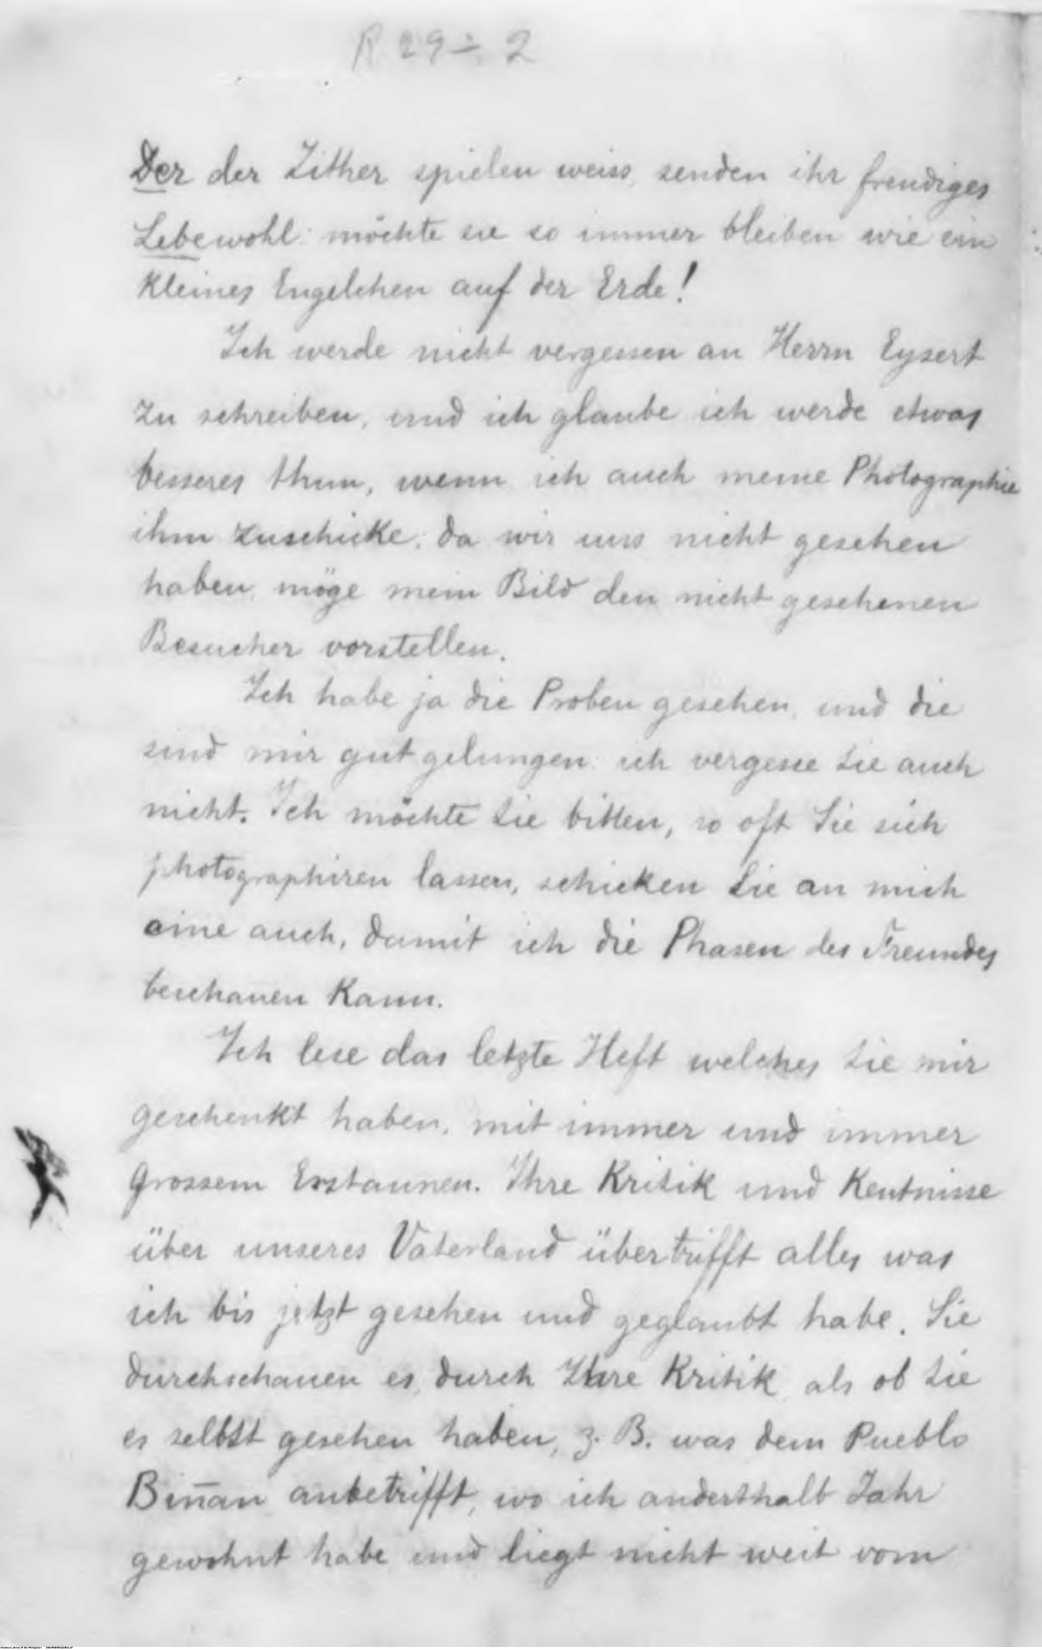 R 29÷2
Der der Zither spielen weiss, senden ihr freudiges
Lebewohl: möchte sie so immer bleiben wie ein
kleines Engelchen auf der Erde!
Ich werde nicht vergessen an Herrn Eysert
zu schreiben, und ich glaube ich werde etwas
besseres thun, wenn ich auch meine Photographie
ihm zuschicke; da wir uns nicht gesehen
haben, möge mein Bild den nicht gesehenen
Besucher vorstellen.
Ich habe ja die Proben gesehen, und die
sind mir gut gelungen: ich vergesse Sie auch
nicht. Ich möchte Sie bitten, so oft Sie sich
photographiren lassen, schicken Sie an mich
eine auch, damit ich die Phasen des Freundes
beschauen kann.
Ich lese das letzte Heft welches Sie mir
geschenkt haben, mit immer und immer
grossem Erstaunen. Ihre Kritik und Kentnisse
über unseres Vaterland übertrifft alles was
ich bis jetzt gesehen und geglaubt habe. Sie
durchschauen es, durch Ihre Kritik, als ob Sie
es selbst gesehen haben, z. B. was dem Pueblo
Biñan anbetrifft, wo ich anderthalb Jahr
gewohnt habe und liegt nicht weit vom